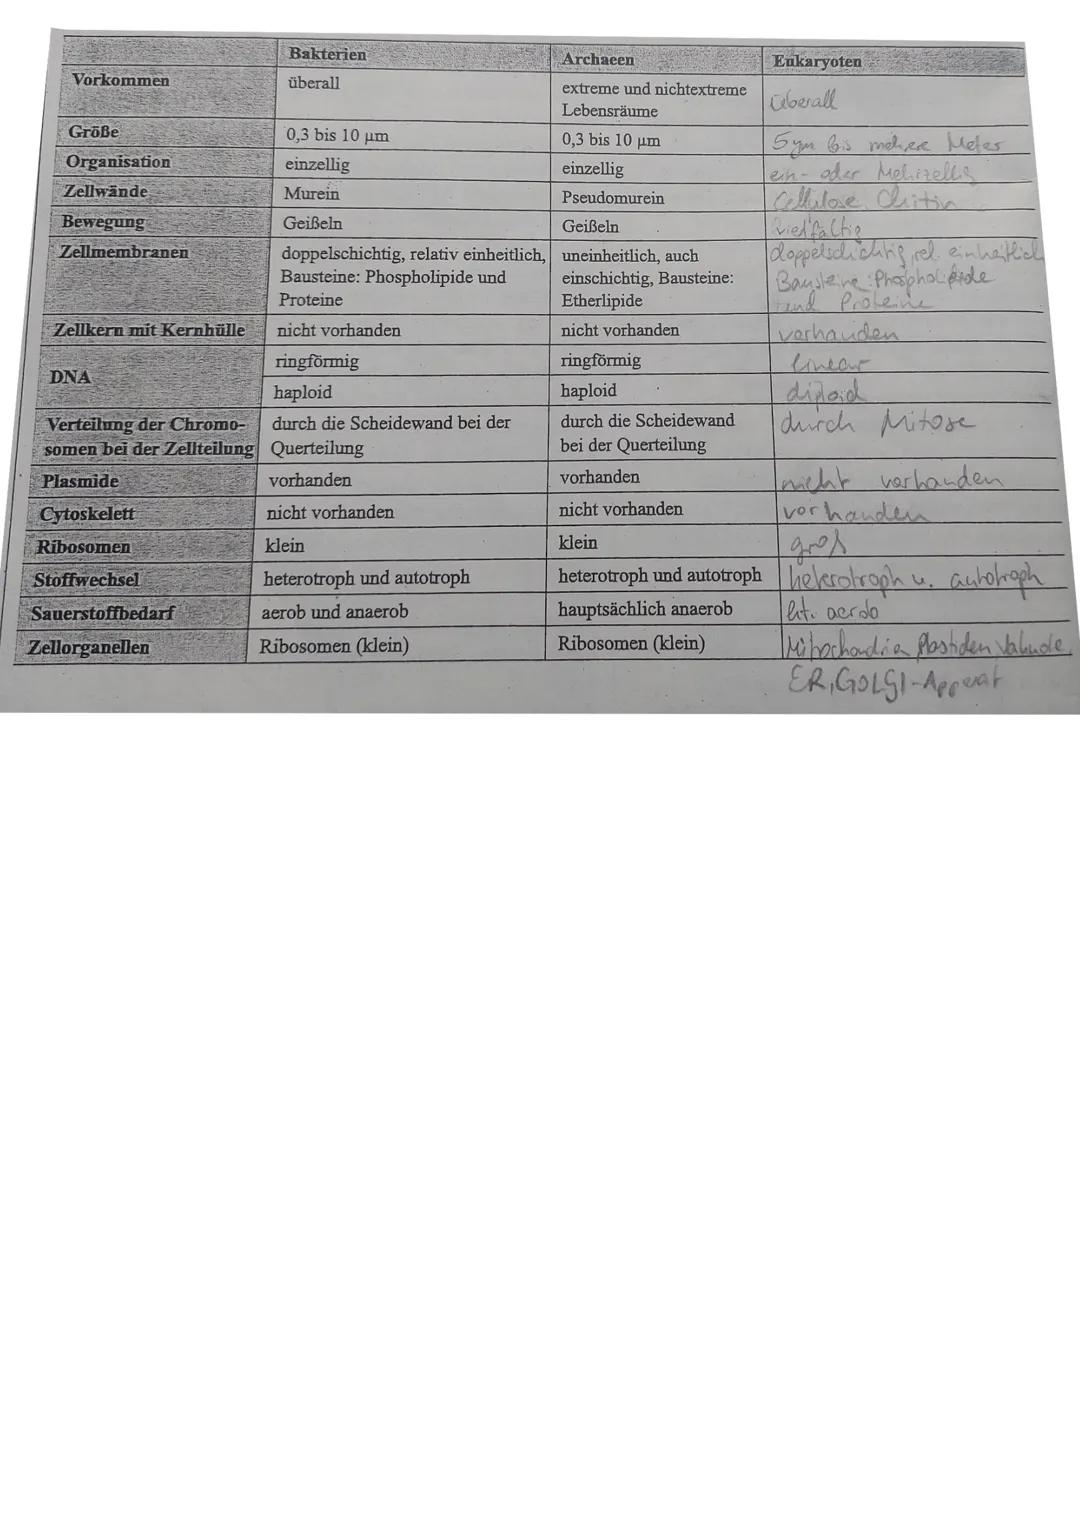 Bakterien Archaeen Eukaryoten
Vorkommen überall extreme und nichtextreme
Lebensräume überall
Größe 0,3 bis 10 µm 0,3 bis 10 µm 5 µm bis mehere Meter
Organisation einzellig einzellig ein- oder Mehrzellig
Zellwände Murein Pseudomurein Cellulose, Chitin
Bewegung Geißeln Geißeln vielfältig
Zellmembranen doppelschichtig, relativ einheitlich, uneinheitlich, auch doppelschichtig, rel. einheitlich
Bausteine: Phospholipide und einschichtig, Bausteine: Bausteine: Phospholipide
Proteine Etherlipide und Proteine
Zellkern mit Kernhülle nicht vorhanden nicht vorhanden vorhanden
DNA ringförmig ringförmig linear
haploid haploid diploid
Verteilung der Chromo- durch die Scheidewand bei der durch die Scheidewand durch Mitose
somen bei der Zellteilung Querteilung bei der Querteilung
Plasmide vorhanden vorhanden nicht vorhanden
Cytoskelett nicht vorhanden nicht vorhanden vorhanden
Ribosomen klein klein groß
Stoffwechsel heterotroph und autotroph heterotroph und autotroph heterotroph u. autotroph
Sauerstoffbedarf aerob und anaerob hauptsächlich anaerob
Zellorganellen Ribosomen (klein) Ribosomen (klein) Mitochondrien Plastiden, Vakuole,
ER, GOLGI-Apperat